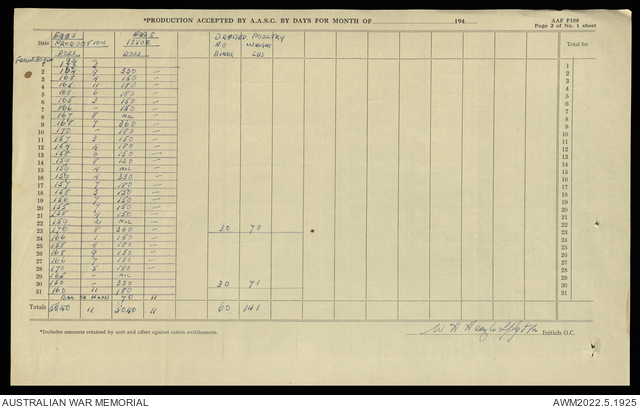 *PRODUCTION ACCEPTED BY A.A.S.C. BY DAYS FOR MONTH OF 194
AAF F180
Page 2 of No. 1 sheet
Date EGGS PRODUCTION DOZS EGGS ISSUE DOZS DRESSED POULTRY NO BIRDS WEIGHT LBS Total for
1 1
2 164 9 330 — 2
3 168 4 150 — 3
4 165 11 180 — 4
5 163 6 180 — 5
6 165 3 150 — 6
7 166 — 150 — 7
8 167 8 NIL — 8
9 168 7 360 — 9
10 170 — 180 — 10
11 157 3 150 — 11
12 154 4 180 — 12
13 158 150 — 13
14 159 8 — 14
15 159 4 NIL — 15
16 4 330 — 16
17 157 7 180 — 17
18 158 150 — 18
19 156 7 150 — 19
20 155 7 150 — 20
21 158 150 — 21
22 159 NIL — 22
23 170 8 360 — 30 70 23
24 166 1 150 — 24
25 158 4 180 — 25
26 168 9 150 — 26
27 166 7 150 — 27
28 170 5 180 — 28
29 165 — NIL — 29
30 — 330 — 30 71 30
31 160 11 180 — 31
70 11
Totals 5040 11 5040 11 60 141
*Includes amounts retained by unit and offset against ration entitlements.
Initials O.C.
AUSTRALIAN WAR MEMORIAL
AWM2022.5.1925